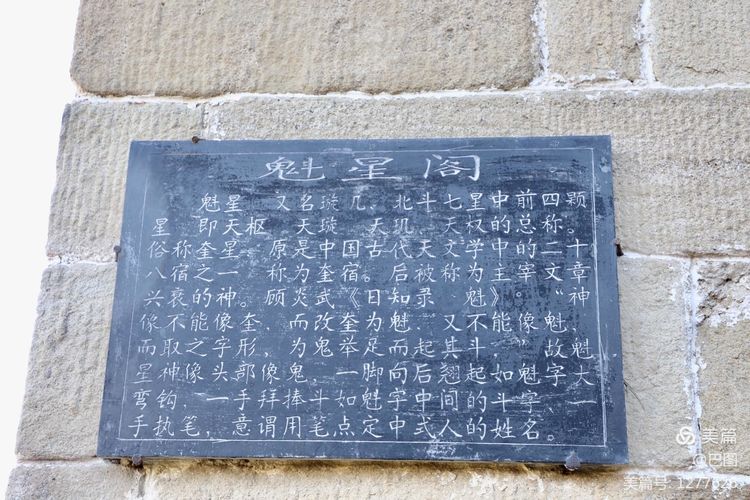 魁星阁
魁星，又名璇几，北斗七里中前四颗
星，即天枢、天璇、天玑、天权的总称。
俗称奎星。原是中国古代天文学中的二十
八宿之一，称为奎宿。后被称为主宰文章
兴衰的神。顾炎武《日知录·魁》："神
像不能像奎，而改奎为魁，又不能像魁，
而取之字形，为鬼举足而起其斗，"故魁
星神像头部像鬼，一脚向后翘起如魁字大
弯钩，一手拜捧斗如魁字中间的斗字，一
手执笔，意谓用笔点定中式人的姓名。
美篇
@巴图
美篇号：